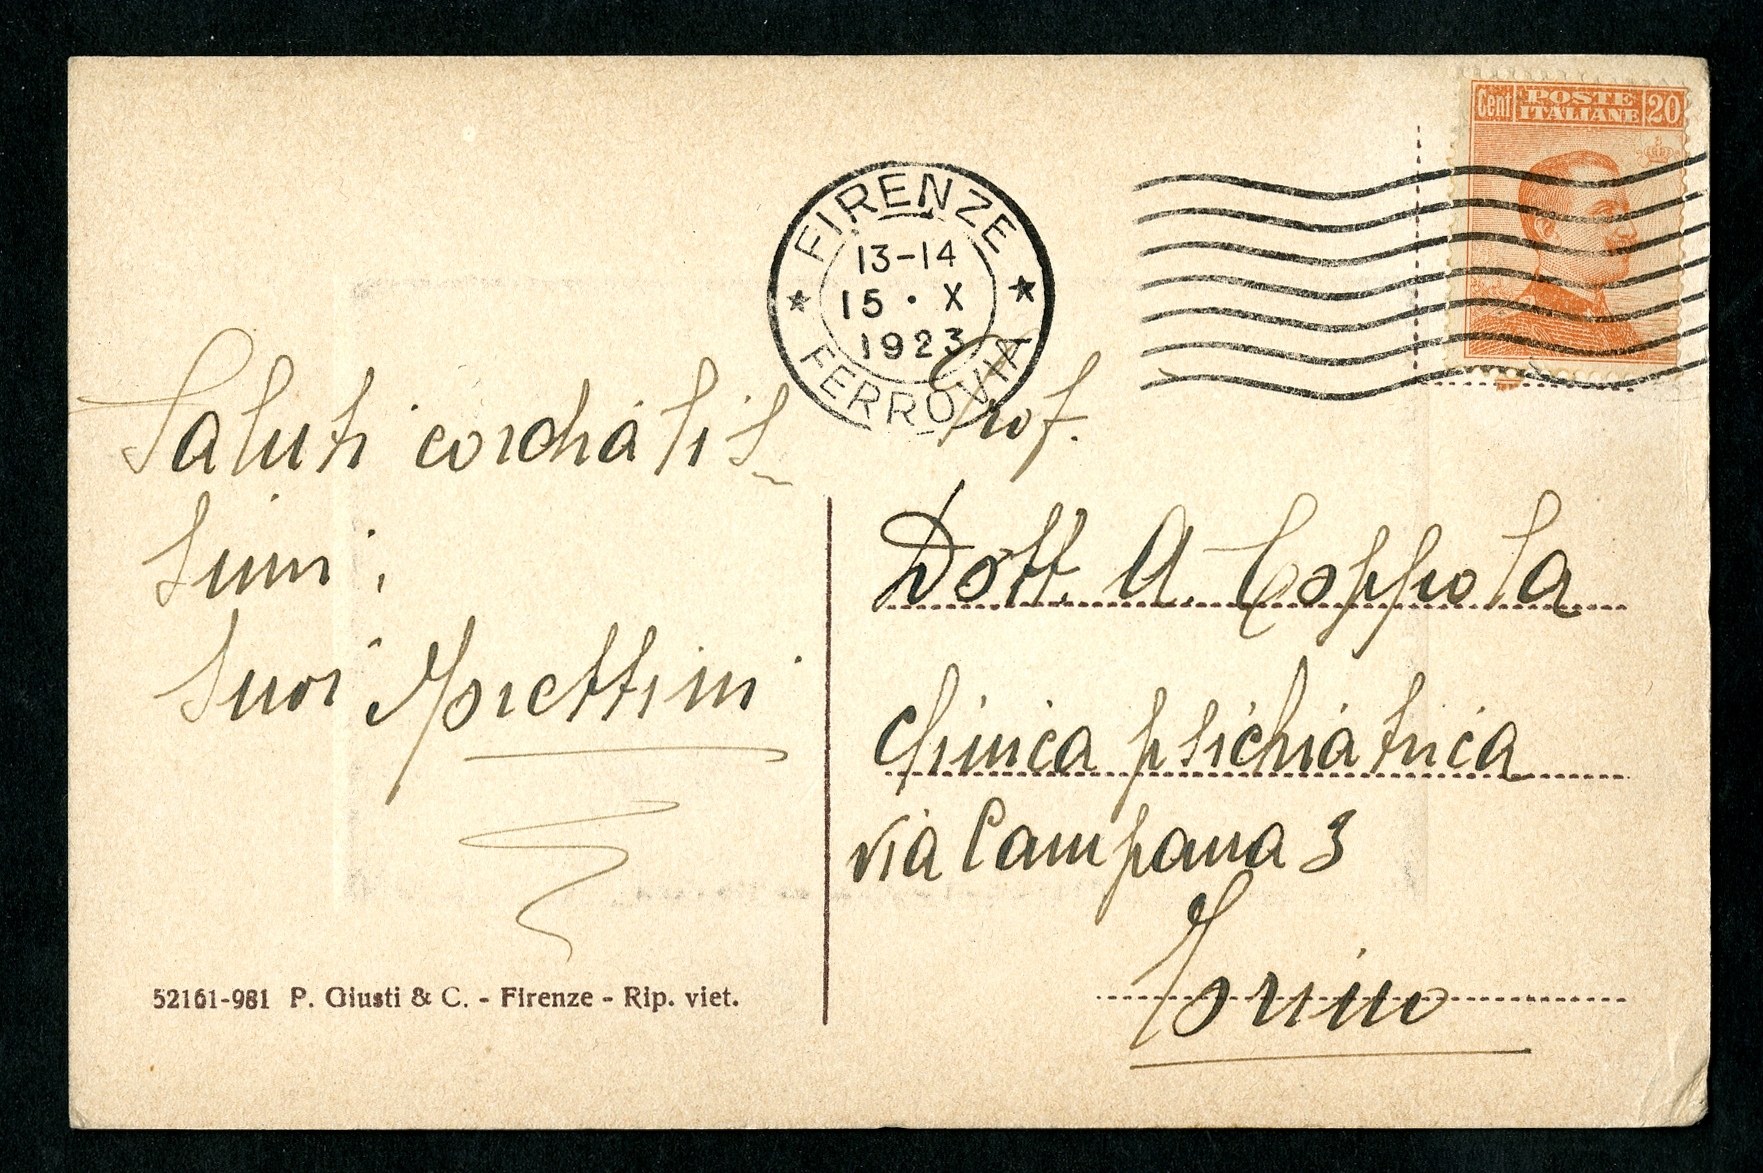 Cent POSTE ITALIANE 20
FIRENZE
13-14
15 · X
1923
FERROVIA
Saluti cordialis-
simi,
Suoi Morettini
Prof.
Dott. A. Coppola
Clinica psichiatrica
via Campana 3
Torino
52161-981 P. Giusti & C. - Firenze - Rip. viet.